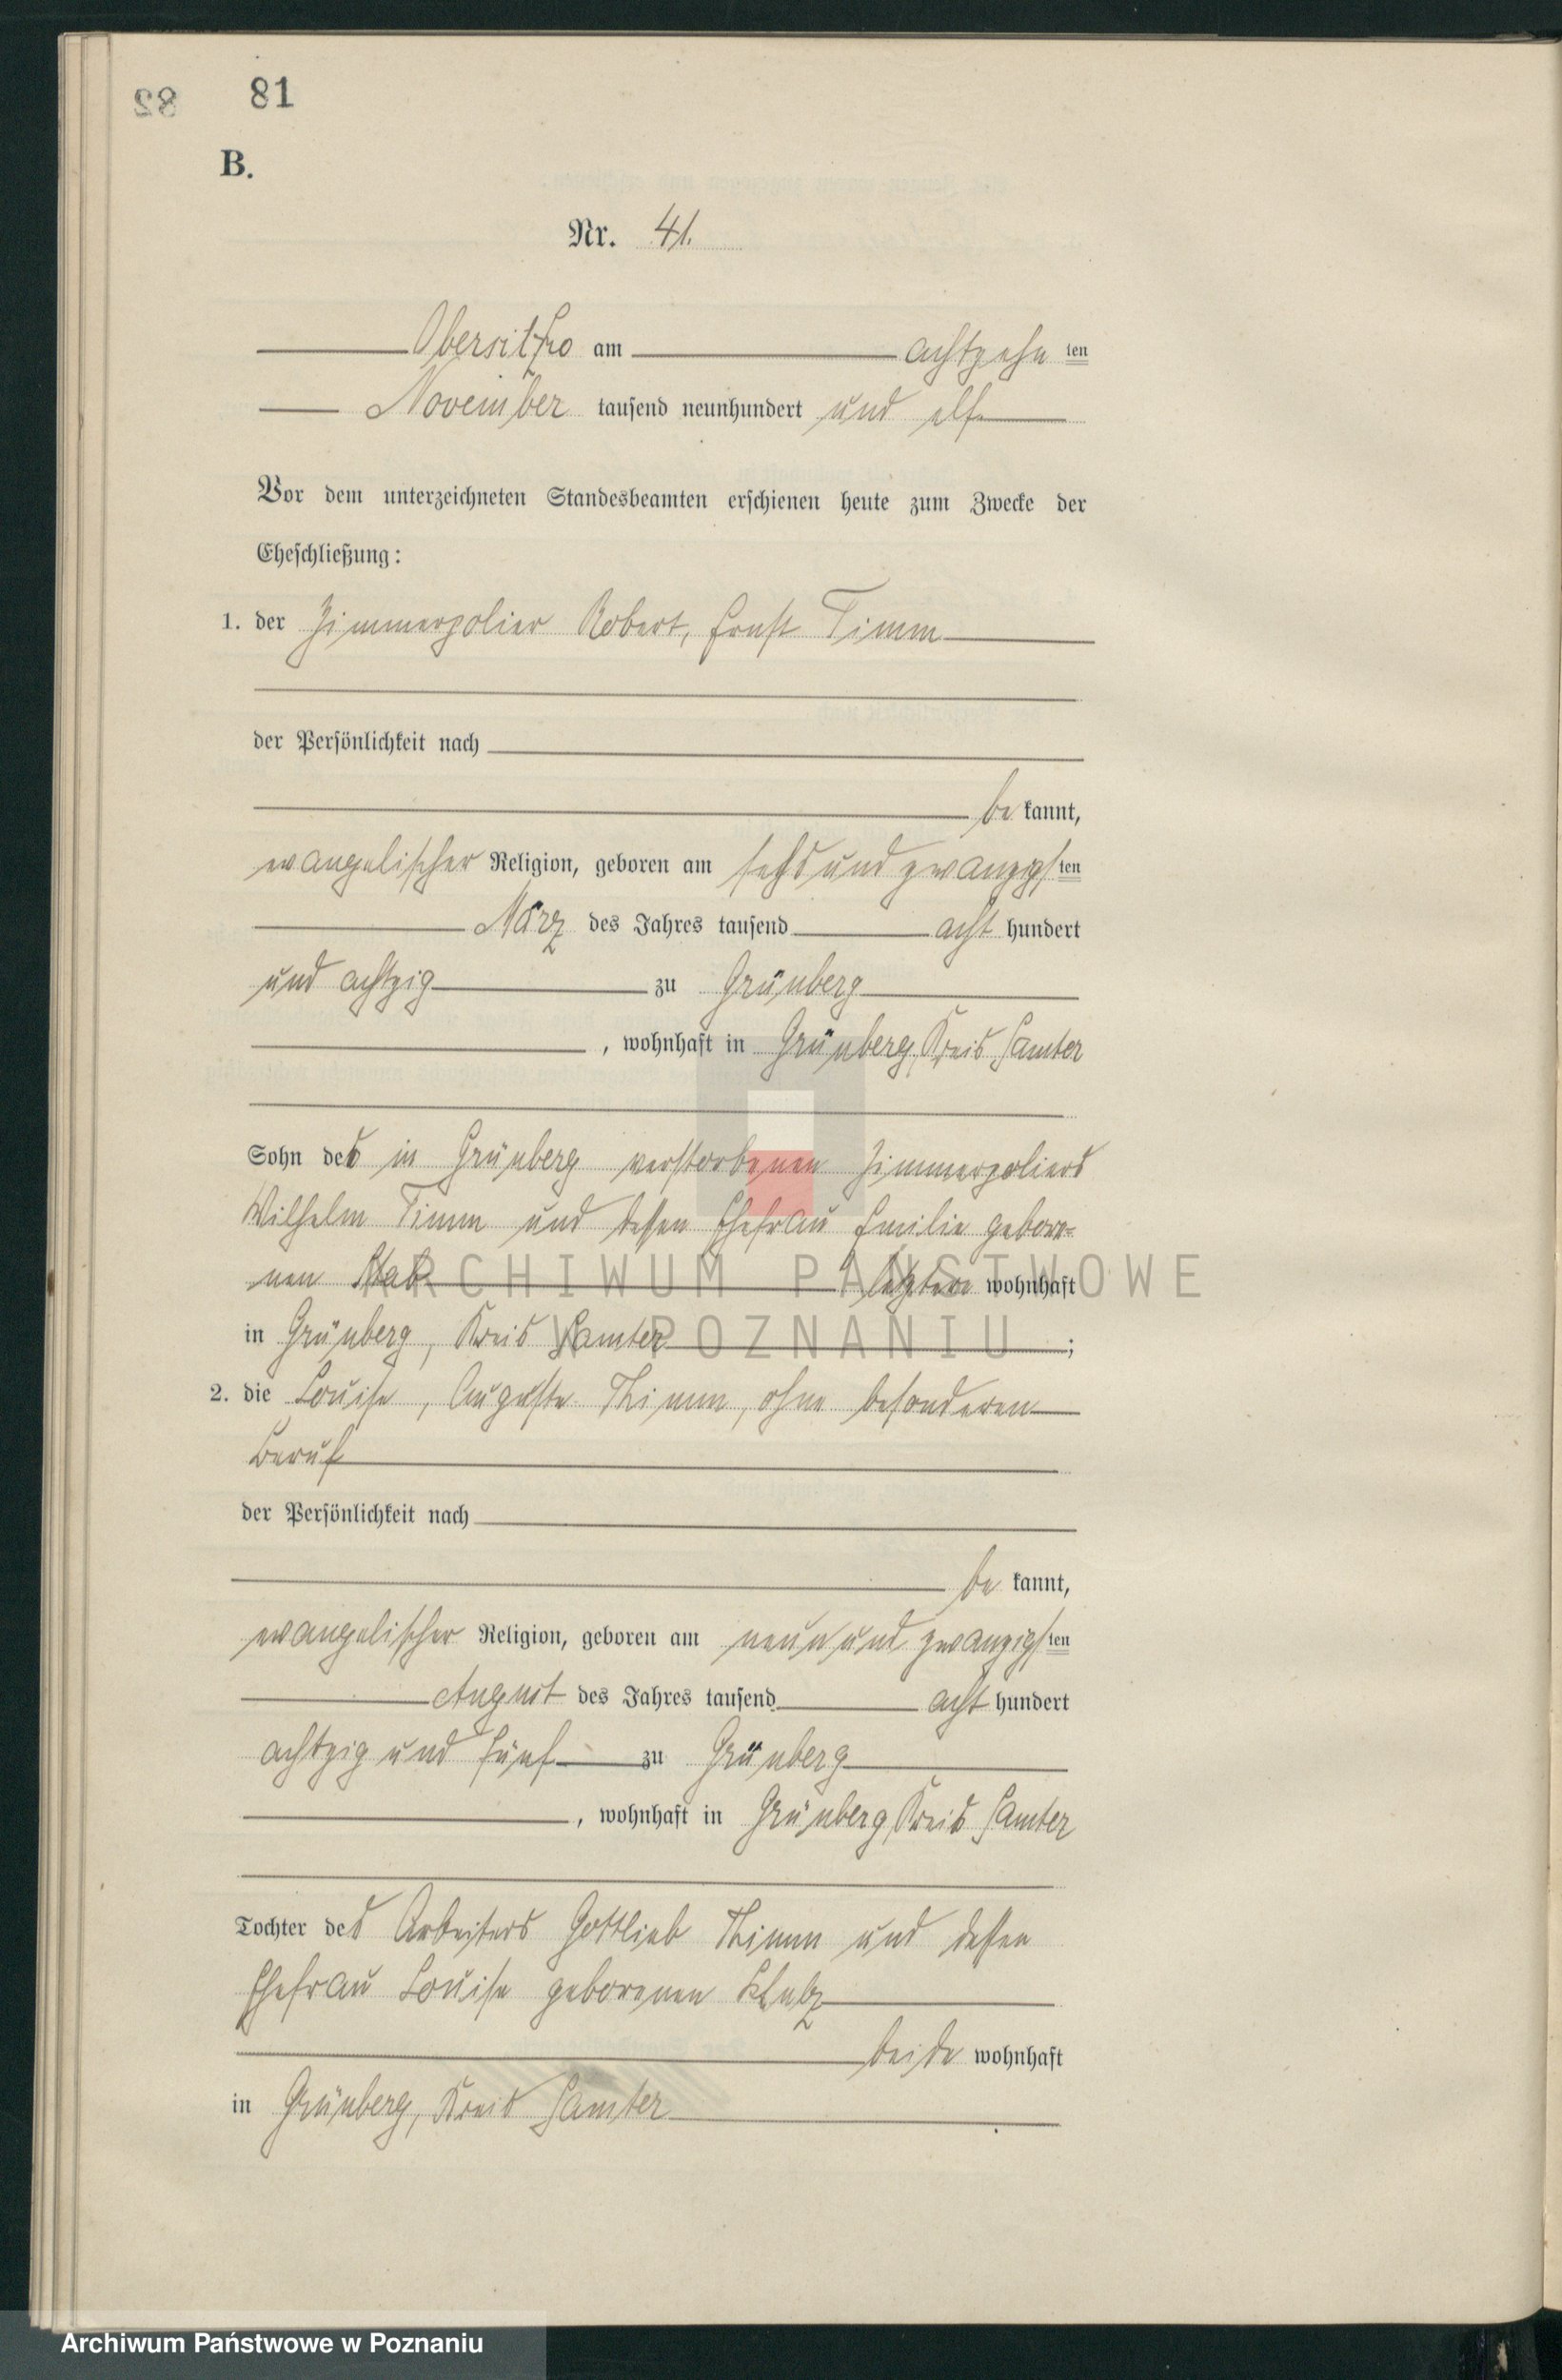 82 81
B.
Nr. 41.
Obersitzko am achtzehn ten
November tausend neunhundert und elf
Vor dem unterzeichneten Standesbeamten erschienen heute zum Zwecke der
Eheschließung:
1. der Zimmerpolier Robert, Ernst Timm
der Persönlichkeit nach
be kannt,
evangelischer Religion, geboren am sechsundzwanzigsten
März des Jahres tausend acht hundert
und achtzig zu Grünberg
, wohnhaft in Grünberg, Kreis Samter
Sohn des in Grünberg verstorbenen Zimmerpoliers
Wilhelm Timm und dessen Ehefrau Emilie gebore-
nen letztere wohnhaft
in Grünberg, Kreis Samter ;
2. die Louise, Auguste Thimm, ohne besonderen
Beruf
der Persönlichkeit nach
be kannt,
evangelischer Religion, geboren am neunundzwanzigsten
August des Jahres tausend acht hundert
achtzig und fünf zu Grünberg
, wohnhaft in Grünberg, Kreis Samter
Tochter des Arbeiters Gottlieb Thimm und dessen
Ehefrau Louise geborenen
beide wohnhaft
in Grünberg, Kreis Samter
ARCHIWUM PAŃSTWOWE
W POZNANIU
Archiwum Państwowe w Poznaniu